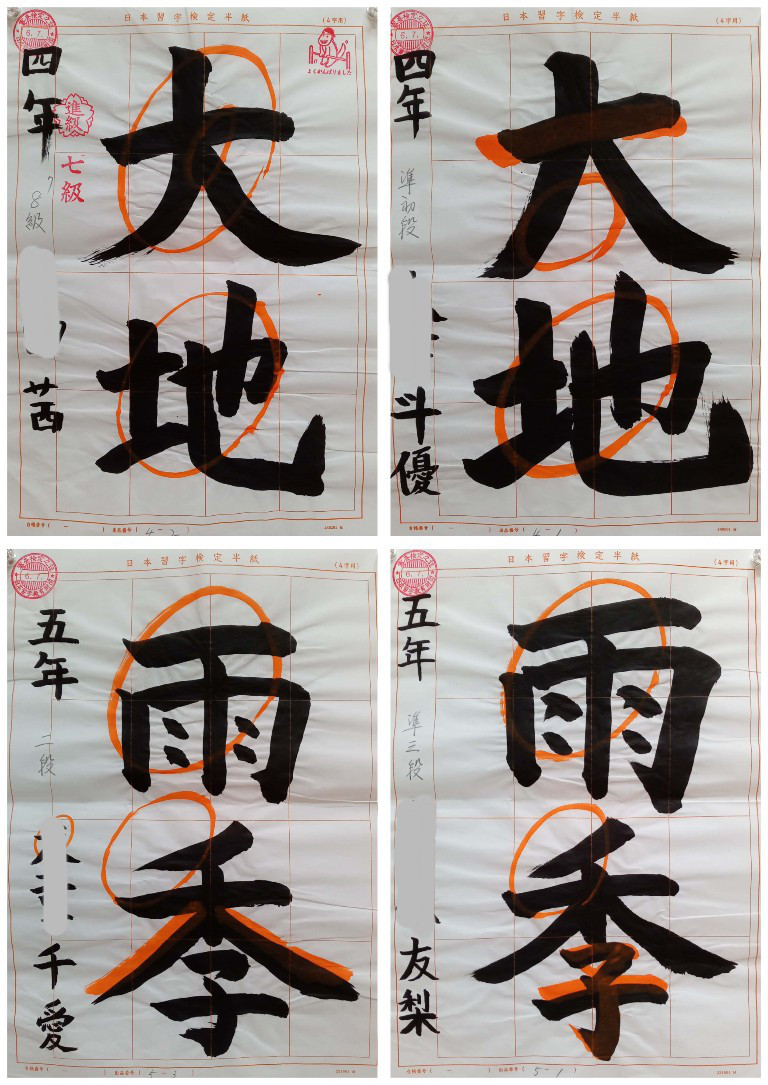 日本習字検定半紙
(4字用)
6.7.
よくがんばりました
四年
進級
七級
8級
茜
大地
4-2
日本習字検定半紙
(4字用)
6.7.
四年
準初段
斗優
大地
4-1
日本習字検定半紙
(4字用)
6.7.
五年
二段
千愛
雨季
5-3
日本習字検定半紙
(4字用)
6.7.
五年
準三段
友梨
雨季
5-1